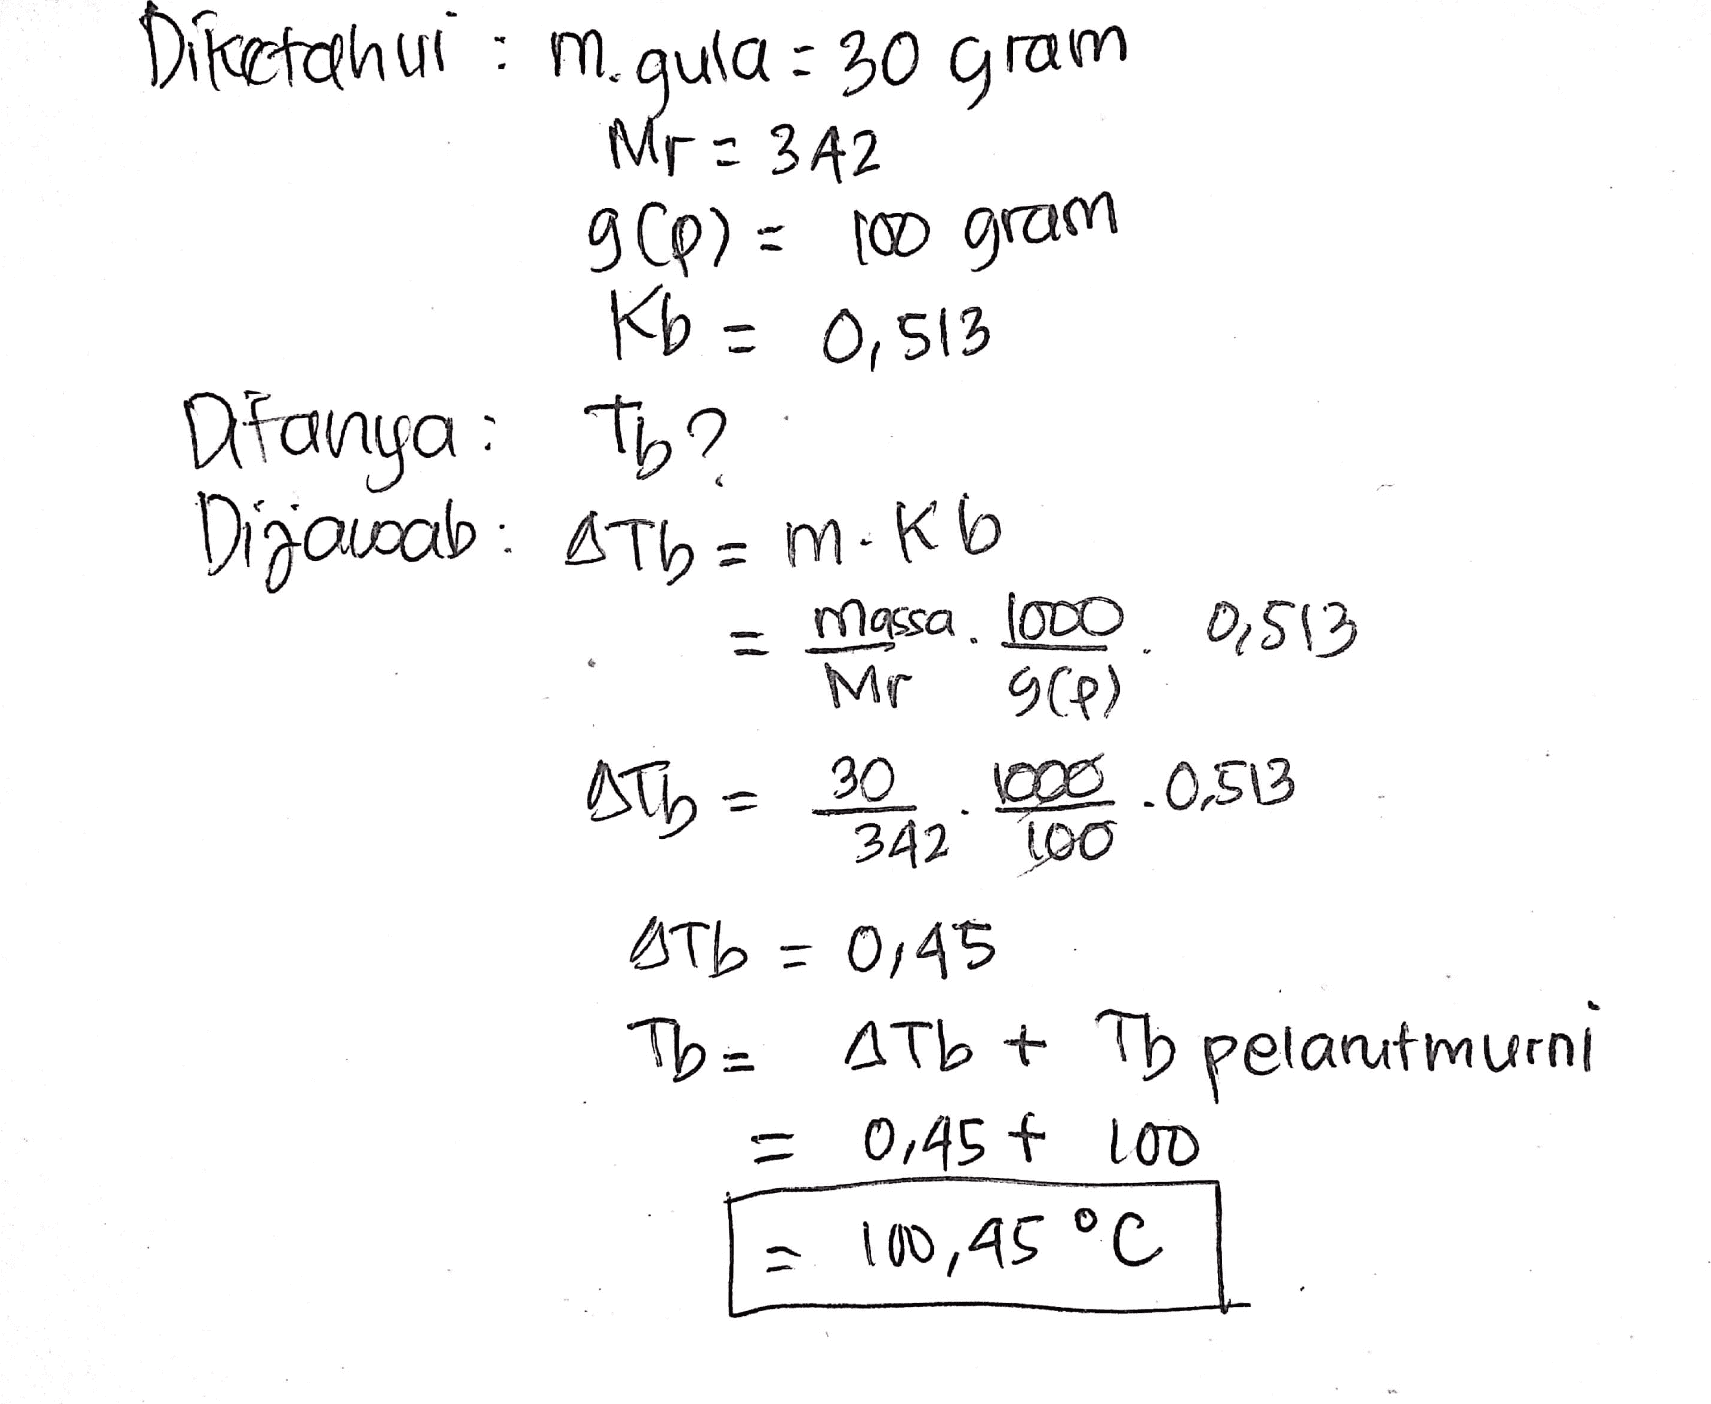 Diketahui : m. gula = 30 gram
Mr = 342
g(p) = 100 gram
Kb = 0,513
Ditanya : Tb?
Dijawab : ΔTb = m . Kb
= massa/Mr . 1000/g(p) . 0,513
ΔTb = 30/342 . 1000/100 . 0,513
ΔTb = 0,45
Tb = ΔTb + Tb pelarut murni
= 0,45 + 100
= 100,45 °C